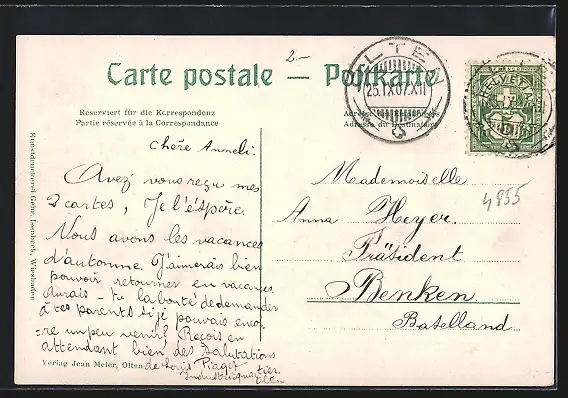 2.-
Carte postale — Postkarte
OLTEN
25.IX.07.XII
HELVETIA
Reserviert für die Korrespondenz
Partie réservée à la Correspondance
Adresse du Destinataire
Chère Anneli.
Avez vous reçu mes
2 cartes, Je l'éspère.
Nous avons les vacances
d'automne. J'aimerais bien
pouvoir retourner en vacances
Aurais-tu la bonté de demander
à tes parents si je pouvais enco-
=re un peu venir? Reçois en
attendant bien des salutations
de Louis Piaget
Industriequartier.
Olten
Mademoiselle
Anna Heyer.
Präsident
Benken
Baselland
4855
Kunstdruckerei Gebr. Isenbeck, Wiesbaden
Verlag Jean Meier, Olten